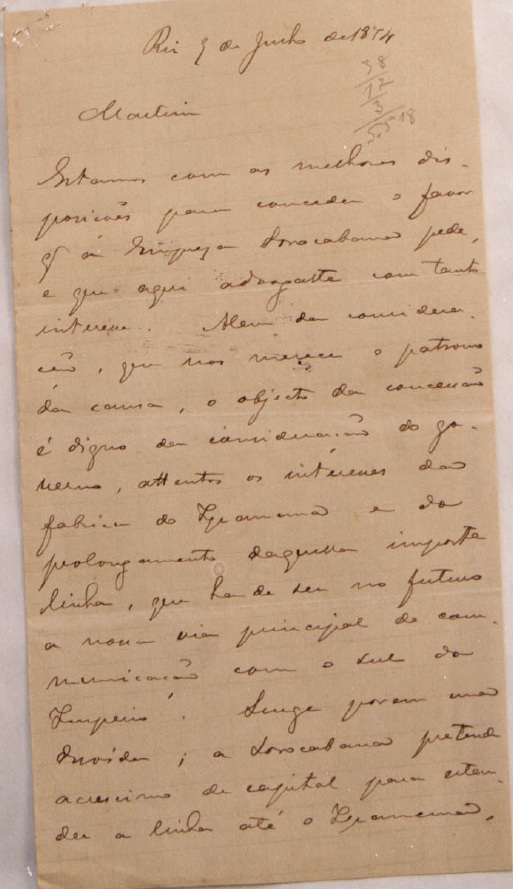 Rio 9 de Junho de 1874
38
12
3
5.5-18
Martim
Estamos com as melhores dis-
posicões para conceder o favor
q̃ á Empreza Sorocabana pede,
e que aqui advogaste com tanto
interesse. Alem da considera-
cão, que nos merece o patrono
da causa, o objecto da concessão
é digno da consideração do go-
verno, attentos os intéresses da
fabrica do Ypanema e do
prolongamento daquella importe
linha, que ha de ser no futuro
a nossa via principal de com-
municacão com o sul do
Imperio. Surge porem uma
duvida; a Sorocabana pretende
acrescimo de capital para esten-
der a linha até o Ypanema,